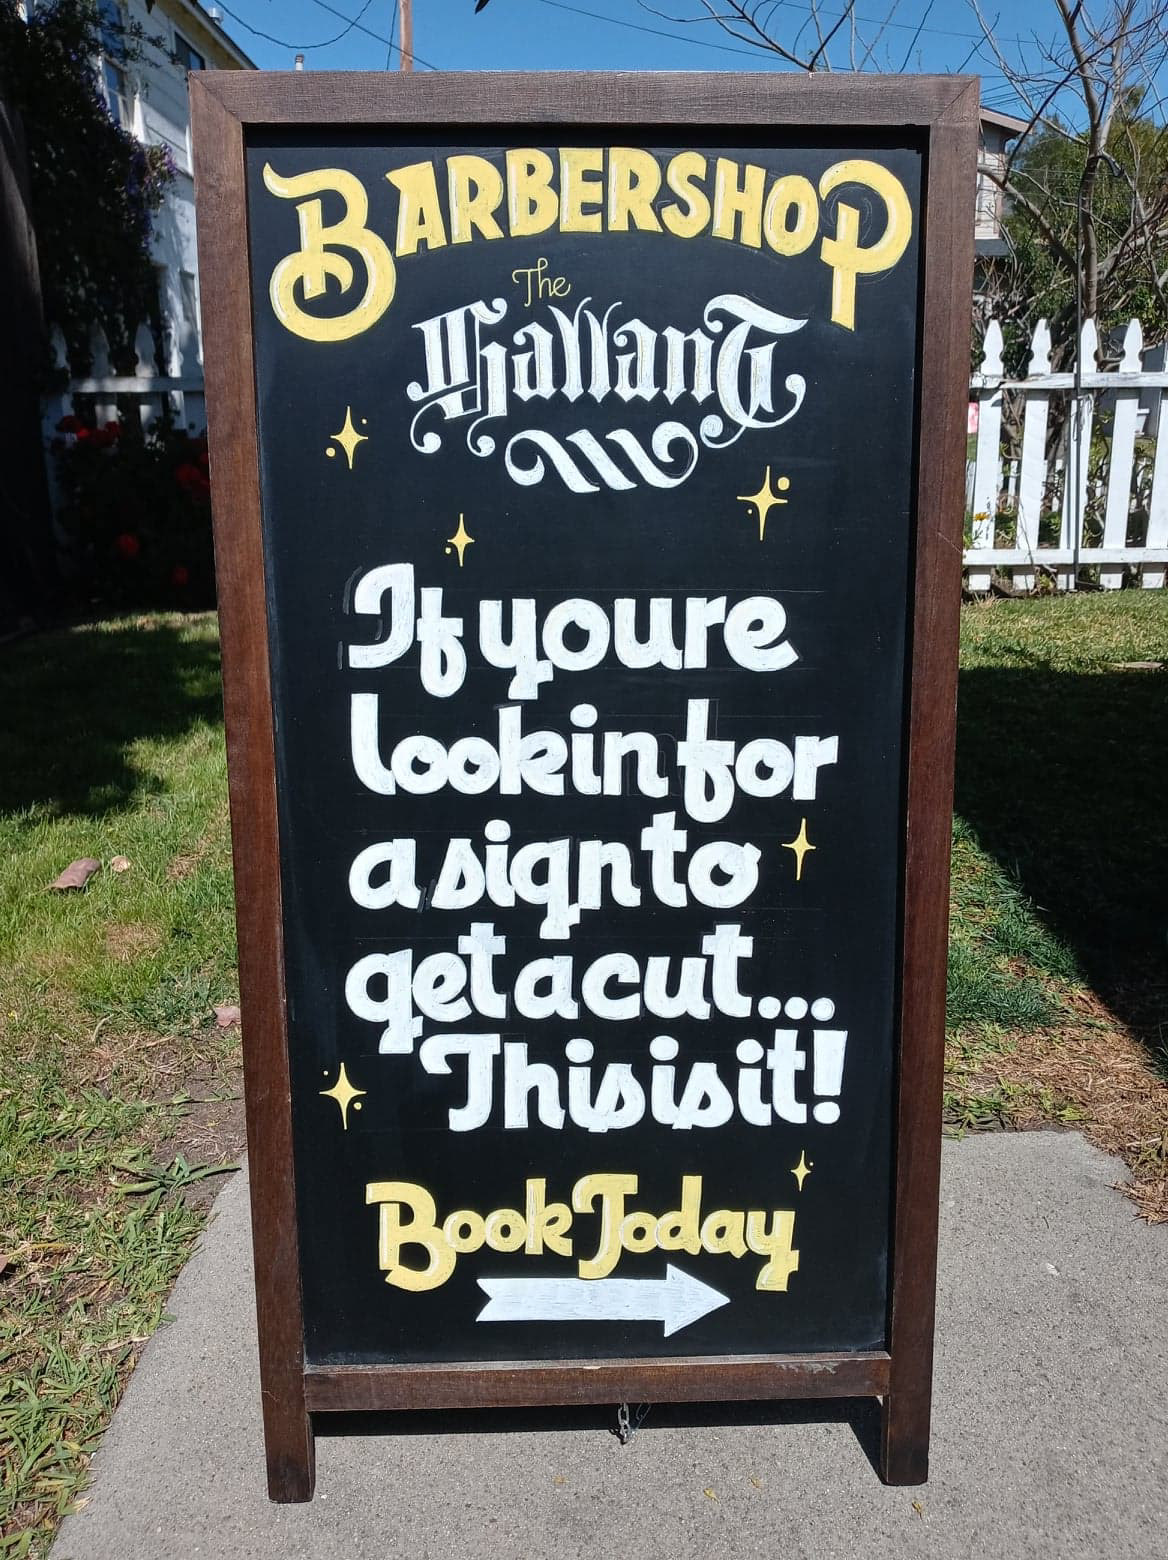 BARBERSHOP
The
Gallant
If youre
lookin for
a sign to
get a cut...
This is it!
Book Today